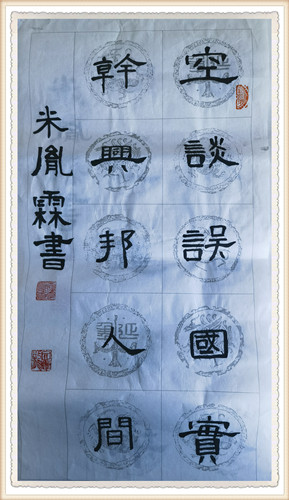 空談誤國實
幹興邦人問
米胤霖書